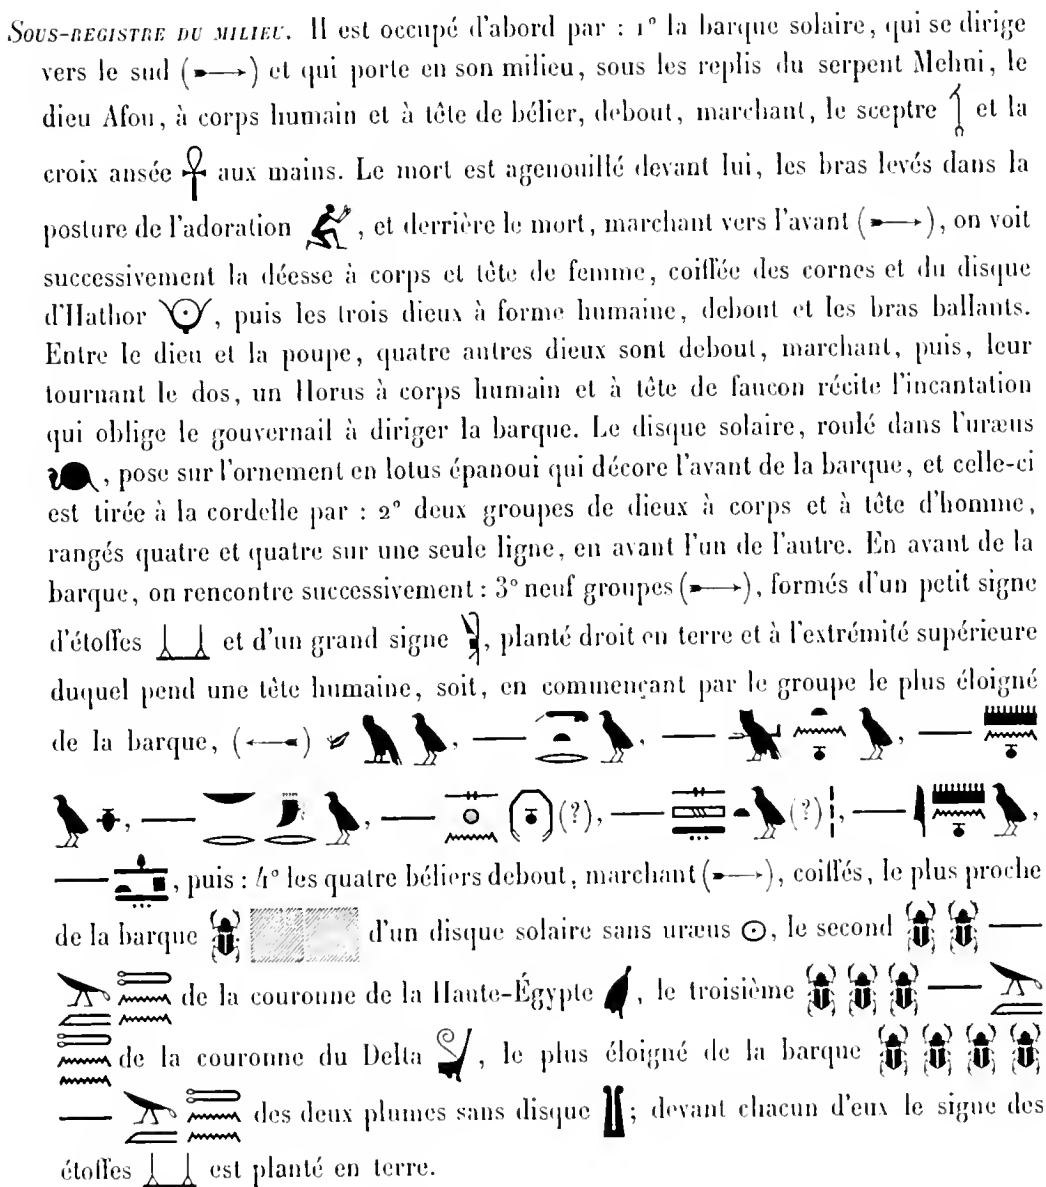 Sous-registre du milieu. Il est occupé d'abord par : 1° la barque solaire, qui se dirige
vers le sud (➸→) et qui porte en son milieu, sous les replis du serpent Mehni, le
dieu Afou, à corps humain et à tête de bélier, debout, marchant, le sceptre 𓌀 et la
croix ansée 𓋹 aux mains. Le mort est agenouillé devant lui, les bras levés dans la
posture de l'adoration, et derrière le mort, marchant vers l'avant (➸→), on voit
successivement la déesse à corps et tête de femme, coiffée des cornes et du disque
d'Hathor, puis les trois dieux à forme humaine, debout et les bras ballants.
Entre le dieu et la poupe, quatre autres dieux sont debout, marchant, puis, leur
tournant le dos, un Horus à corps humain et à tête de faucon récite l'incantation
qui oblige le gouvernail à diriger la barque. Le disque solaire, roulé dans l'uræus
, pose sur l'ornement en lotus épanoui qui décore l'avant de la barque, et celle-ci
est tirée à la cordelle par : 2° deux groupes de dieux à corps et à tête d'homme,
rangés quatre et quatre sur une seule ligne, en avant l'un de l'autre. En avant de la
barque, on rencontre successivement : 3° neuf groupes (➸→), formés d'un petit signe
d'étoffes et d'un grand signe, planté droit en terre et à l'extrémité supérieure
duquel pend une tête humaine, soit, en commençant par le groupe le plus éloigné
de la barque, (←), —, —, —
, —, — (?), — (?), —,
—, puis : 4° les quatre béliers debout, marchant (➸→), coiffés, le plus proche
de la barque 𓆣 d'un disque solaire sans uræus ☉, le second 𓆣𓆣 —
de la couronne de la Haute-Égypte, le troisième 𓆣𓆣𓆣 —
de la couronne du Delta, le plus éloigné de la barque 𓆣𓆣𓆣𓆣
— des deux plumes sans disque; devant chacun d'eux le signe des
étoffes est planté en terre.